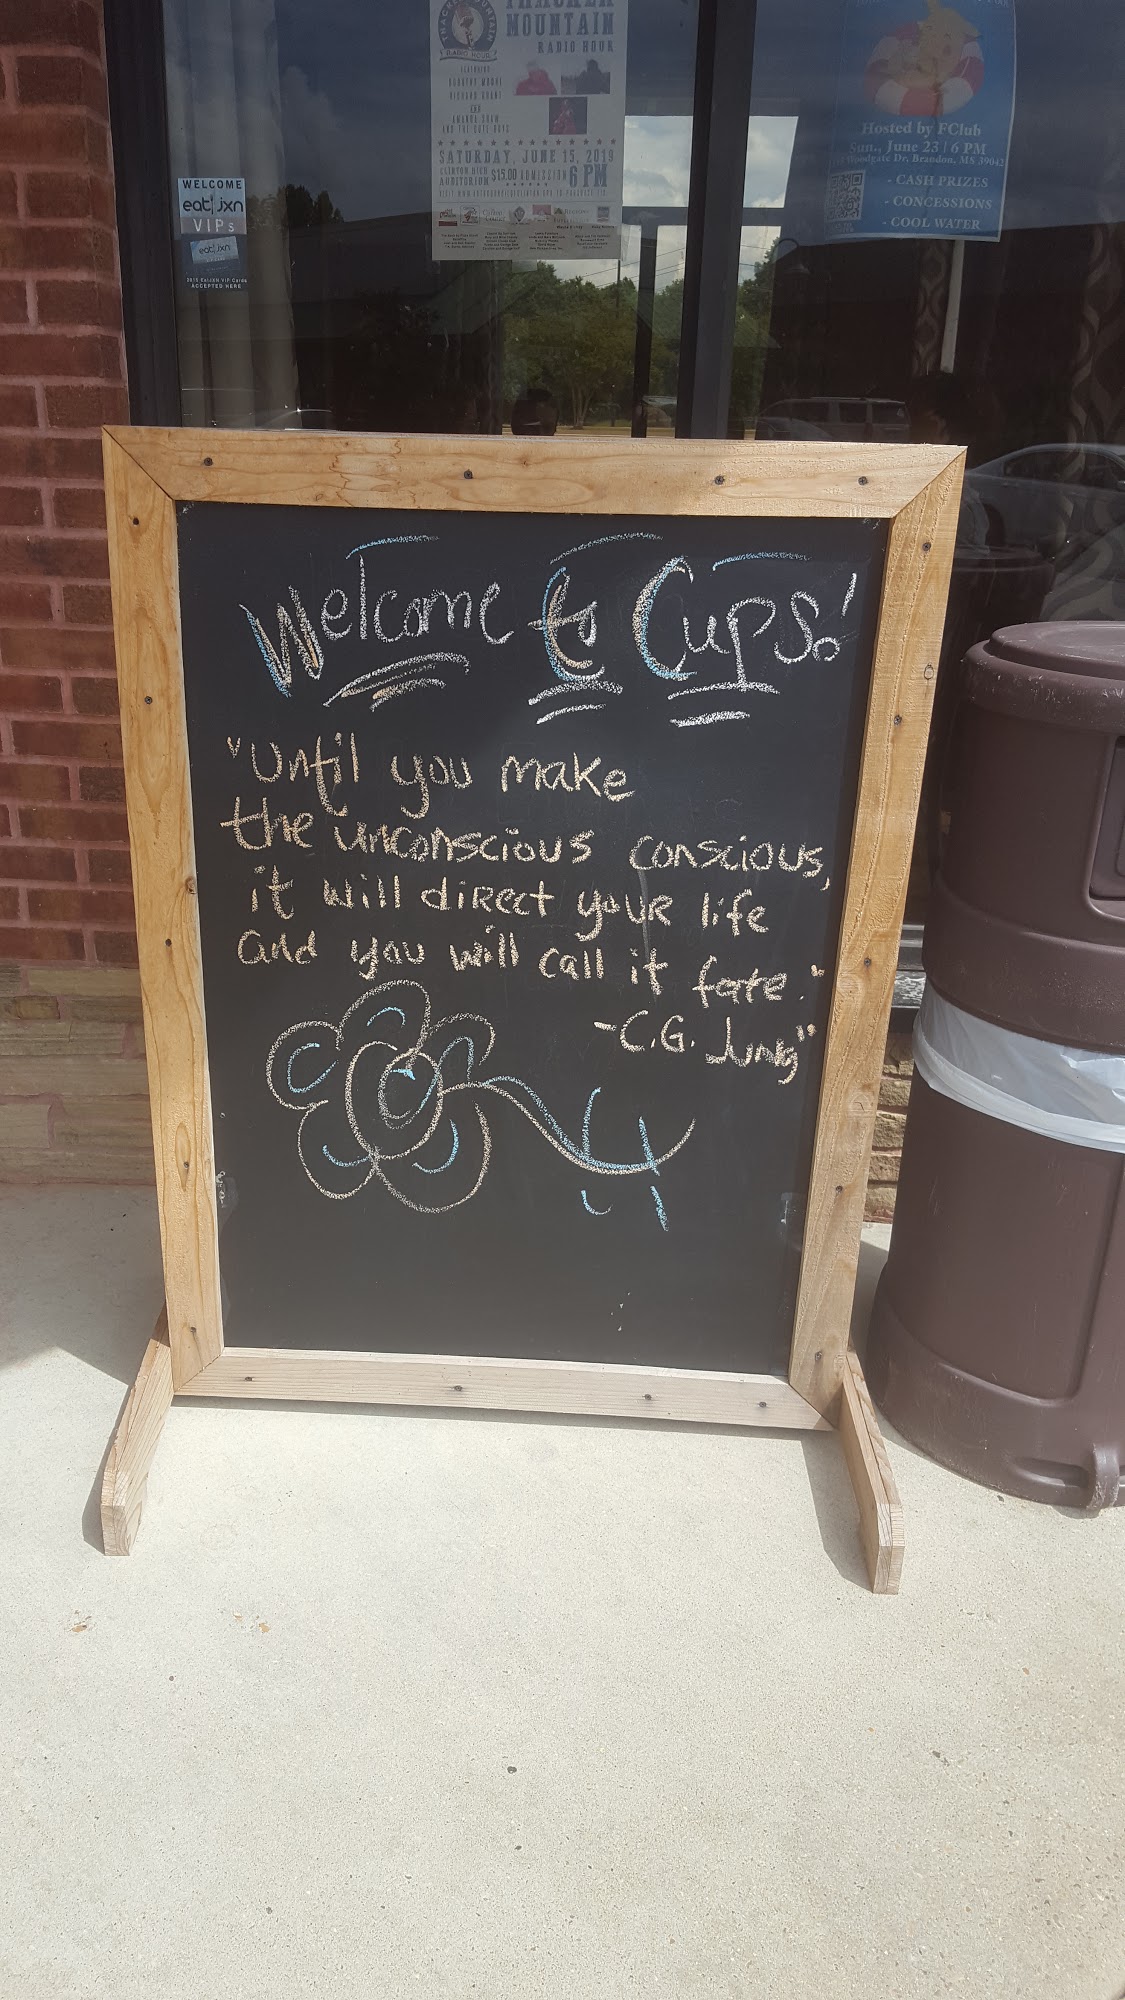 THACKER
MOUNTAIN
RADIO HOUR
RADIO HOUR
FEATURING
AND
AMANDA SHAW
AND THE CUTE GUYS
SATURDAY, JUNE 15, 2019
CLINTON HIGH
AUDITORIUM $15.00 ADMISSION 6 PM
Hosted by FClub
Sun., June 23 | 6 PM
Woodgate Dr. Brandon, MS 39042
- CASH PRIZES
- CONCESSIONS
- COOL WATER
WELCOME
eat jxn
VIPs
eat jxn
ACCEPTED HERE
Welcome to Cups!
"Until you make
the unconscious conscious,
it will direct your life
and you will call it fate."
-C.G. Jung"